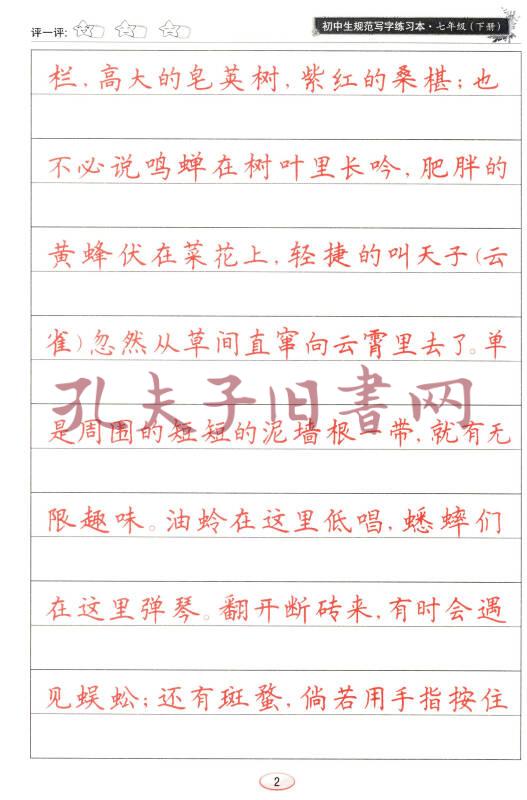 评一评:
初中生规范写字练习本·七年级(下册)
栏,高大的皂荚树,紫红的桑椹;也
不必说鸣蝉在树叶里长吟,肥胖的
黄蜂伏在菜花上,轻捷的叫天子(云
雀)忽然从草间直窜向云霄里去了。单
孔夫子旧書网
是周围的短短的泥墙根一带,就有无
限趣味。油蛉在这里低唱,蟋蟀们
在这里弹琴。翻开断砖来,有时会遇
见蜈蚣;还有斑蝥,倘若用手指按住
2